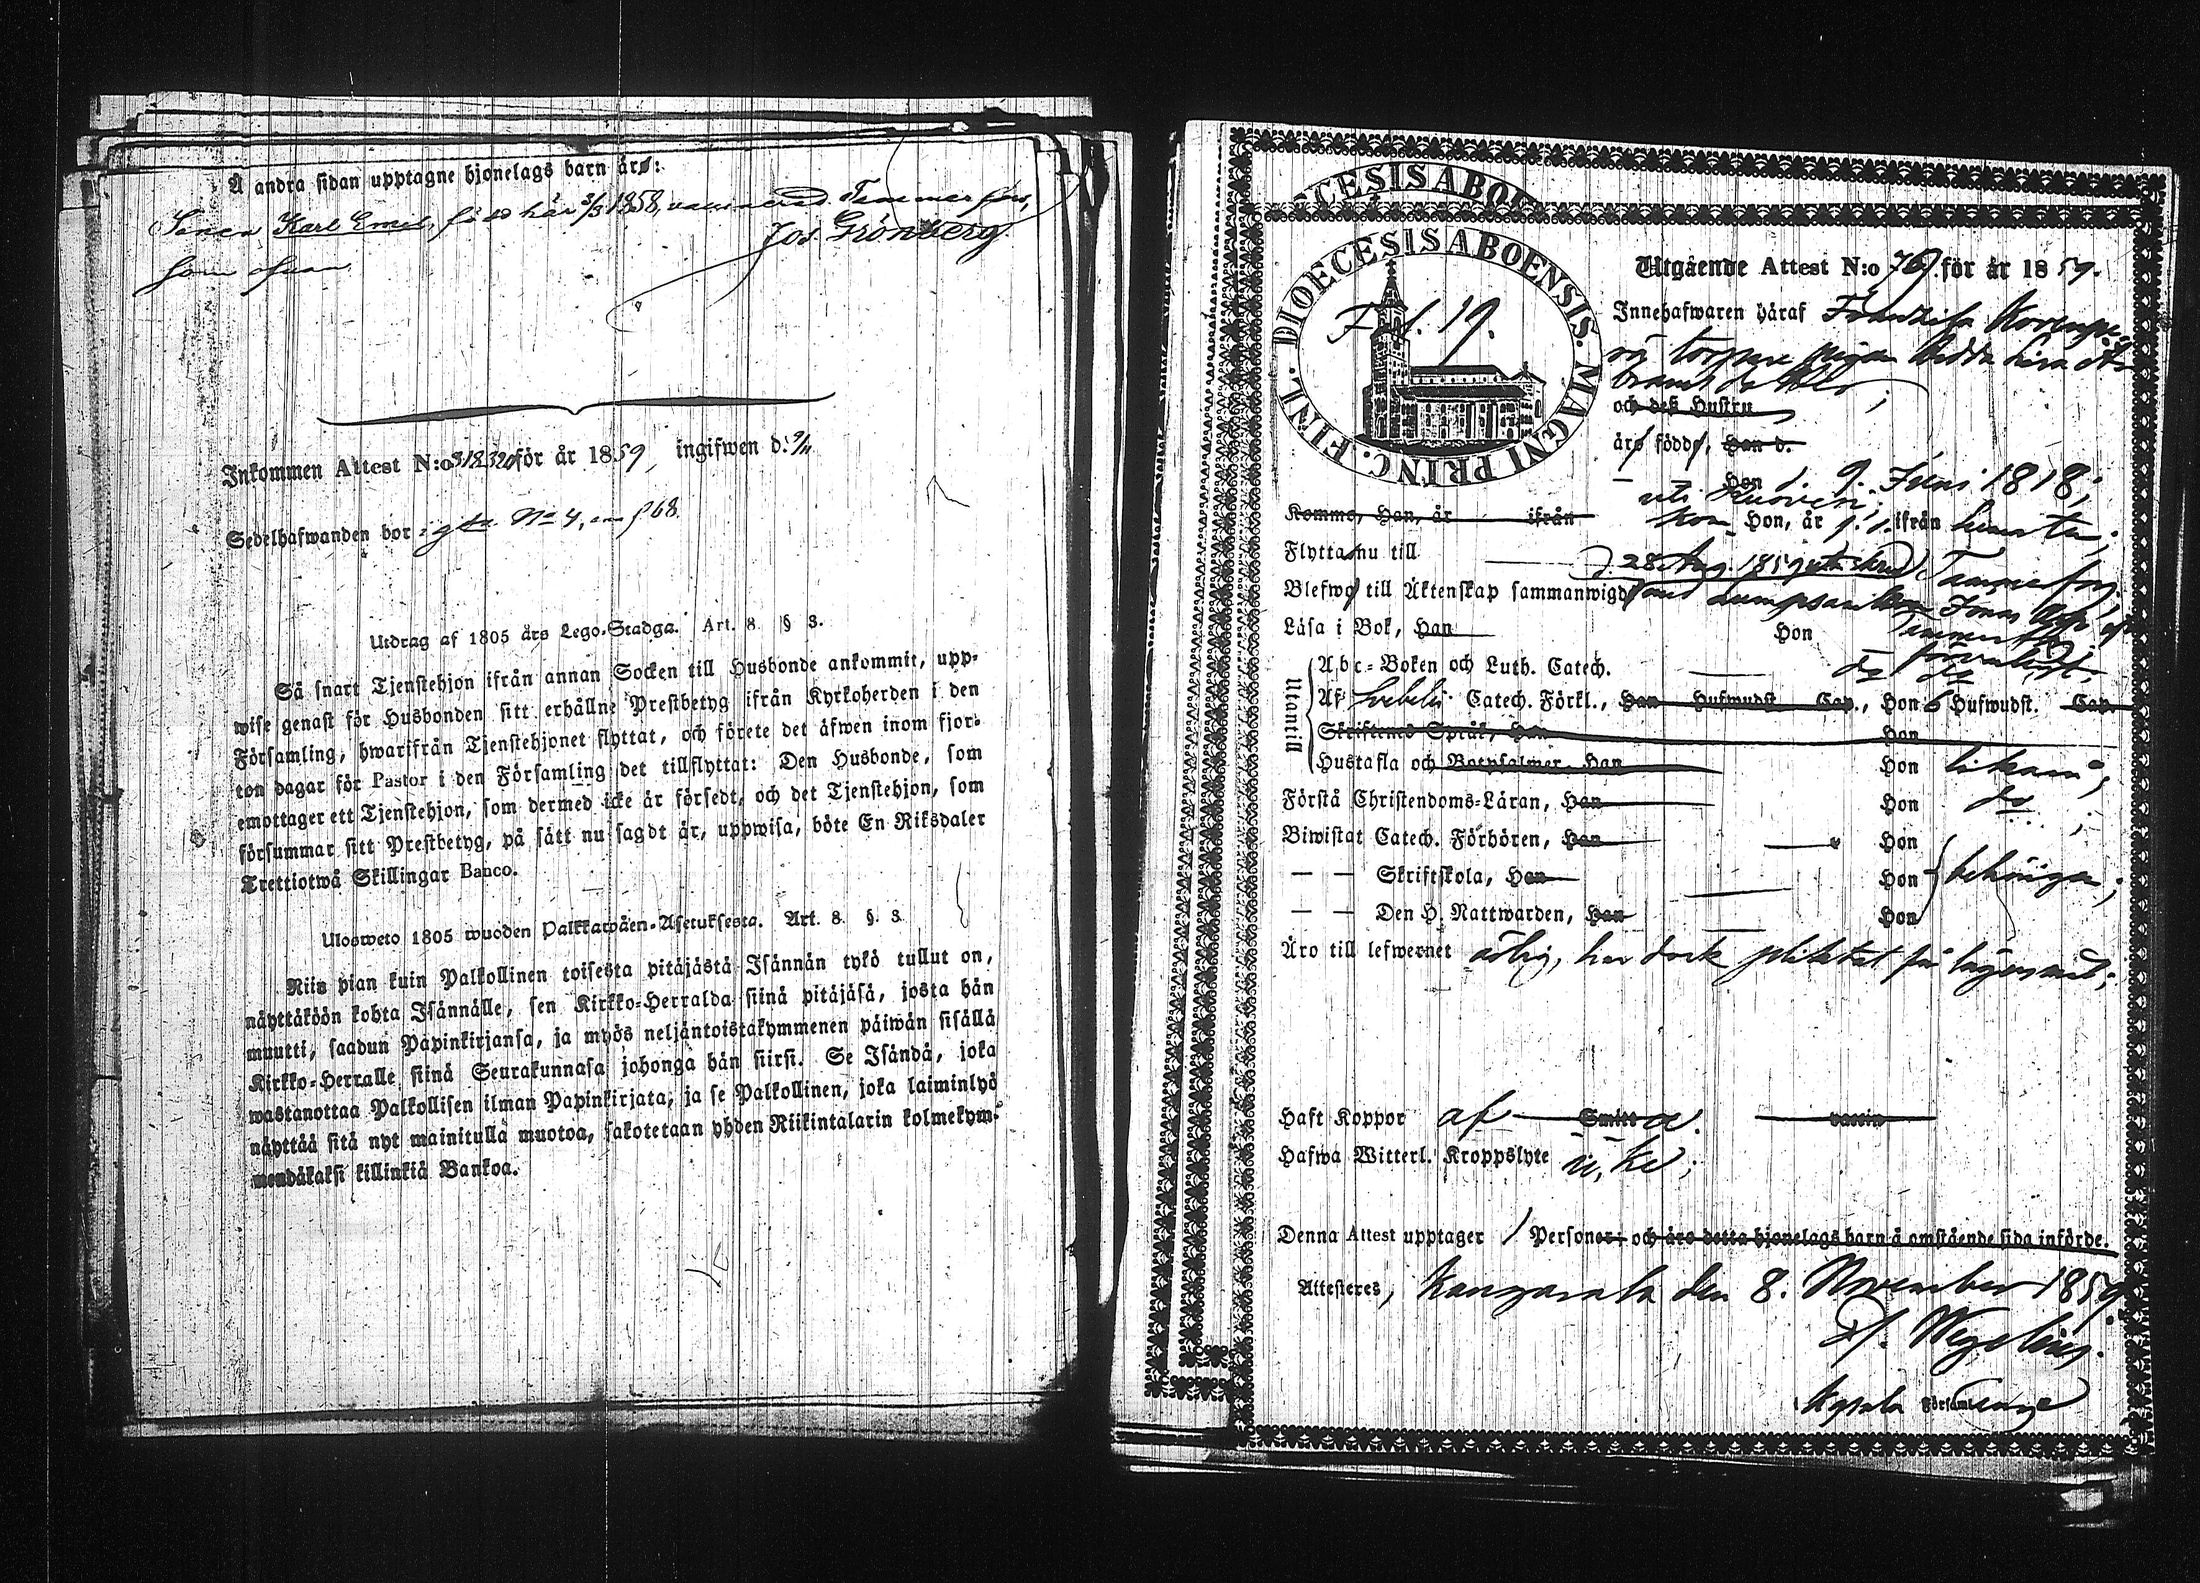 Å andra sidan upptagne hjonelags barn äro:
Sonen Karl Emel, född här 3/3 1858, vaccinerad. Tammerfors,
som ofvan Jos. Grönberg
Inkommen Attest N:o 318 320 för år 1859, ingifwen d.
Sedelhafwanden bor i No 4, 68
Utdrag af 1805 års Lego-Stadga. Art. 8 § 3.
Så snart Tjenstehjon ifrån annan Socken till Husbonde ankommit, upp-
wise genast för Husbonden sitt erhållne Prestbetyg ifrån Kyrkoherden i den
Församling, hwarifrån Tjenstehjonet flyttat, och förete det äfwen inom fjor-
ton dagar för Pastor i den Församling det tillflyttat: Den Husbonde, som
emottager ett Tjenstehjon, som dermed icke är försedt, och det Tjenstehjon, som
försummar sitt Prestbetyg, på sätt nu sagdt är, uppwisa, böte En Riksdaler
Trettiotwå Skillingar Banco.
Ulosweto 1805 wuoden Palkkawäen-Asetuksesta. Art. 8. §. 3.
Niin pian kuin Palkollinen toisesta pitäjästä Isännän tykö tullut on,
näyttäköön kohta Isännälle, sen Kirkko-Herralda siinä pitäjäsä, josta hän
muutti, saadun Papinkirjansa, ja myös neljäntoistakymmenen päiwän sisällä
Kirkko-Herralle siinä Seurakunnasa johonga hän siirsi. Se Isändä, joka
wastanottaa Palkollisen ilman Papinkirjata, ja se Palkollinen, joka laiminlyö
näyttää sitä nyt mainitulla muotoa, sakotetaan yhden Riikintalarin kolmekym-
mendäkaksi killinkiä Bankoa.
DIOECESIS ABOENSIS. MAGNI PRINC. FINL.
Fol. 19.
Utgående Attest N:o 76 för år 1859.
Innehafwaren häraf
torpare pigan Hedda Lisa
och deß Hustru
äro födde, Han d.
Hon d. 9. Juni 1818;
Komme, Han, år ifrån
Kom Hon, år ifrån
Flytta nu till Tammerfors
d. 28 Aug. 1859
Blefwo till Äktenskap sammanwigde med
Läsa i Bok, Han Hon
Utantill
Abc-Boken och Luth. Catech.
Af Svebelii Catech. Förkl., Han Hufwudst. Cap., Hon 6 Hufwudst. Cap.
Skriftenes Språk, Han Hon
Hustafla och Botpsalmer, Han Hon likaså;
Förstå Christendoms-Läran, Han Hon do;
Biwistat Catech. Förhören, Han Hon
— — Skriftskola, Han Hon behörigen;
— — Den H. Nattwarden, Han Hon
Äro till lefwernet ärlig, har dock pliktat för lägersmål;
Haft Koppor af Smitt a. vaccin
Hafwa Witterl. Kroppslyte icke;
Denna Attest upptager 1 Personer; och äro detta hjonelags barn å omstående sida införde.
Attesteres, Kangasala den 8. November 1859
Wegelius.
Församl